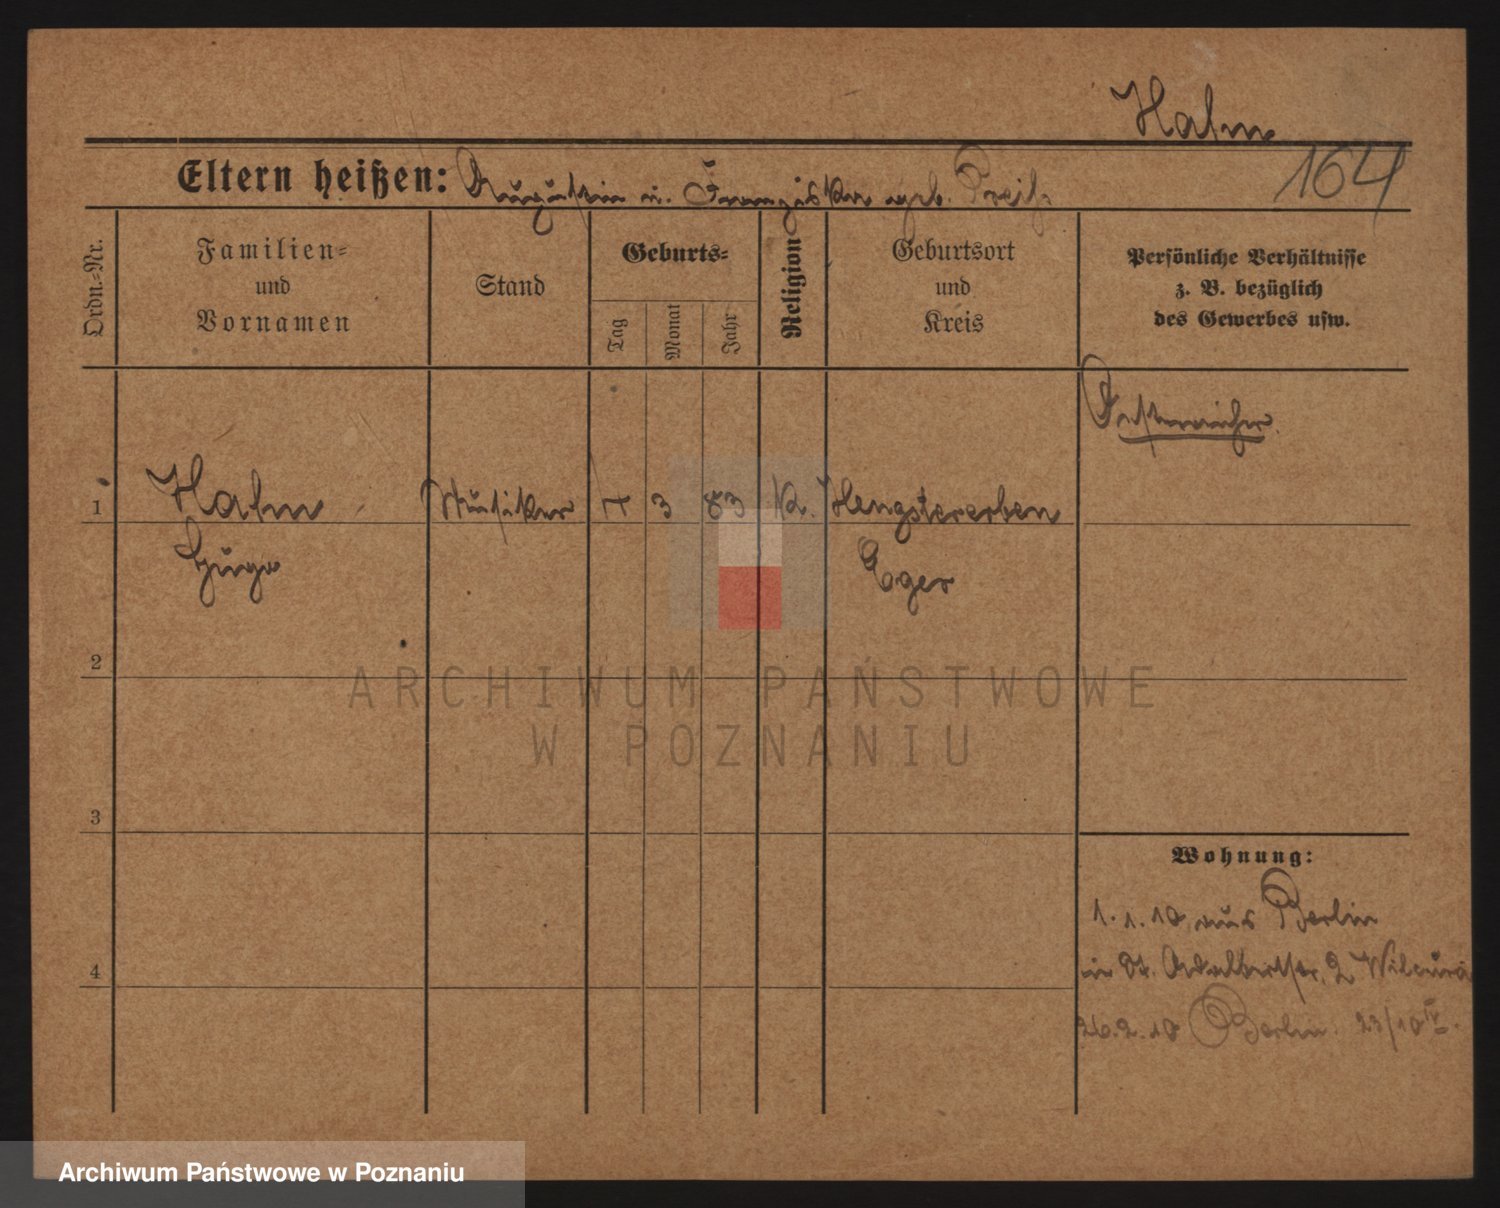 Hahn
164
Eltern heißen: Augustin u. Franziska geb. Preiß
Ordn.-Nr.
Familien-
und
Vornamen
Stand
Geburts-
Tag
Monat
Jahr
Religion
Geburtsort
und
Kreis
Persönliche Verhältnisse
z. B. bezüglich
des Gewerbes usw.
Oesterreicher
1 Hahn Musiker 7 3 83 K. Hengstererben
Hugo Eger
2
ARCHIWUM PAŃSTWOWE
W POZNANIU
3
Wohnung:
1. 1. 10 aus Berlin
in St. Adalbertstr. 2
4
26. 2. 10 Berlin. 23/10
Archiwum Państwowe w Poznaniu